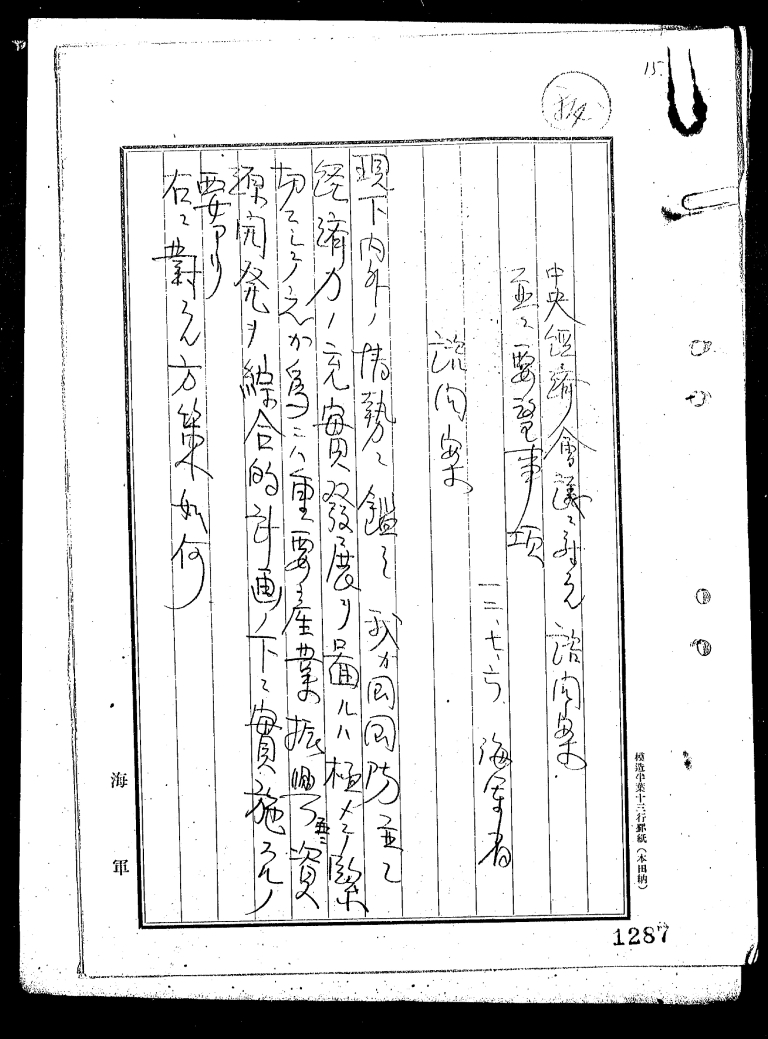 15.
中央經濟會議ニ對スル諮問案
並ニ要望事項
一二、七、六、海軍省
諮問案
現下内外ノ情勢ニ鑑ミ我カ国国防並ニ
経済力ノ充實發展ヲ圖ルハ極メテ緊
切ニシテ之カ為ニハ重要産業ノ振興並ニ資
源開発ヲ綜合的計画ノ下ニ實施スルノ
要アリ
右ニ對スル方策如何
海軍
模造半葉十三行罫紙(本田納)
1287